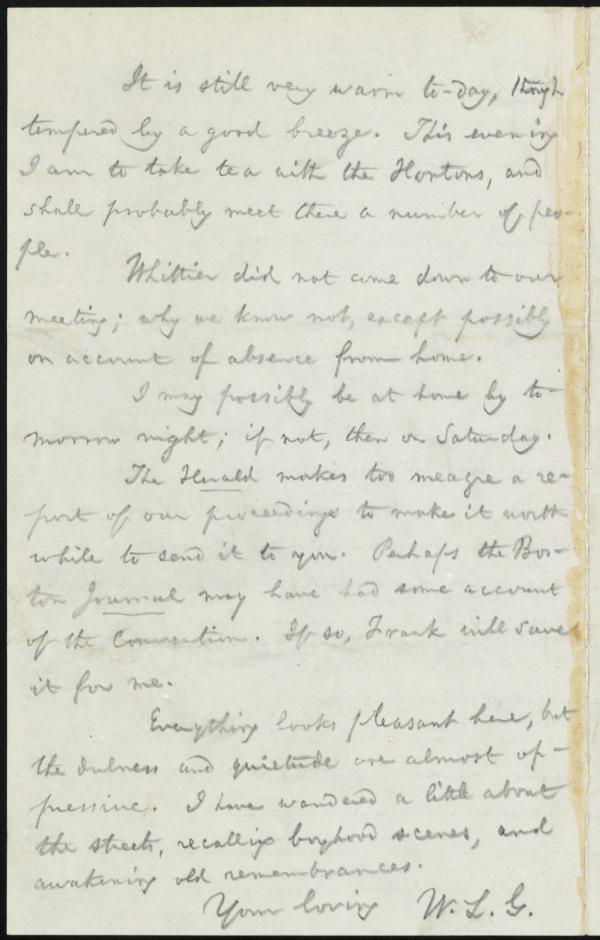 It is still very warm to-day, though
tempered by a good breeze. This evening
I am to take tea with the Hortons, and
shall probably meet there a number of peo-
ple.
Whittier did not come down to our
meeting; why we know not, except possibly
on account of absence from home.
I may possibly be at home by to-
morrow night; if not, then on Saturday.
The Herald makes too meagre a re-
port of our proceedings to make it worth
while to send it to you. Perhaps the Bos-
ton Journal may have had some account
of the Convention. If so, Frank will save
it for me.
Everything looks pleasant here, but
the dulness and quietude are almost op-
pressive. I have wandered a little about
the streets, recalling boyhood scenes, and
awakening old remembrances.
Your loving W. L. G.